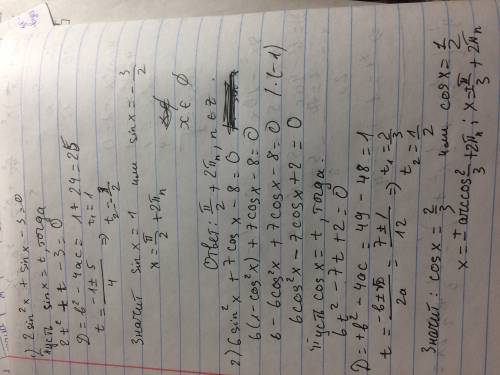 1) 2 sin²x + sin x - 3 = 0
Пусть sin x = t, тогда
2t² + t - 3 = 0
D = b² - 4ac = 1 + 24 = 25
t = (-1 ± 5)/4 => t₁ = 1
t₂ = -3/2
Значит sin x = 1 или sin x = -3/2
x = π/2 + 2πn
x ∈ ∅
Ответ: π/2 + 2πn, n ∈ z.
2) 6 sin²x + 7 cos x - 8 = 0
6(1 - cos²x) + 7 cos x - 8 = 0
6 - 6cos²x + 7cos x - 8 = 0 / · (-1)
6cos²x - 7cos x + 2 = 0
Пусть cos x = t, тогда:
6t² - 7t + 2 = 0
D = b² - 4ac = 49 - 48 = 1
t = (-b ± √D)/2a = (7 ± 1)/12 => t₁ = 2/3
t₂ = 1/2
Значит: cos x = 2/3 или cos x = 1/2
x = ± arccos 2/3 + 2πn ; x = ± π/3 + 2πn